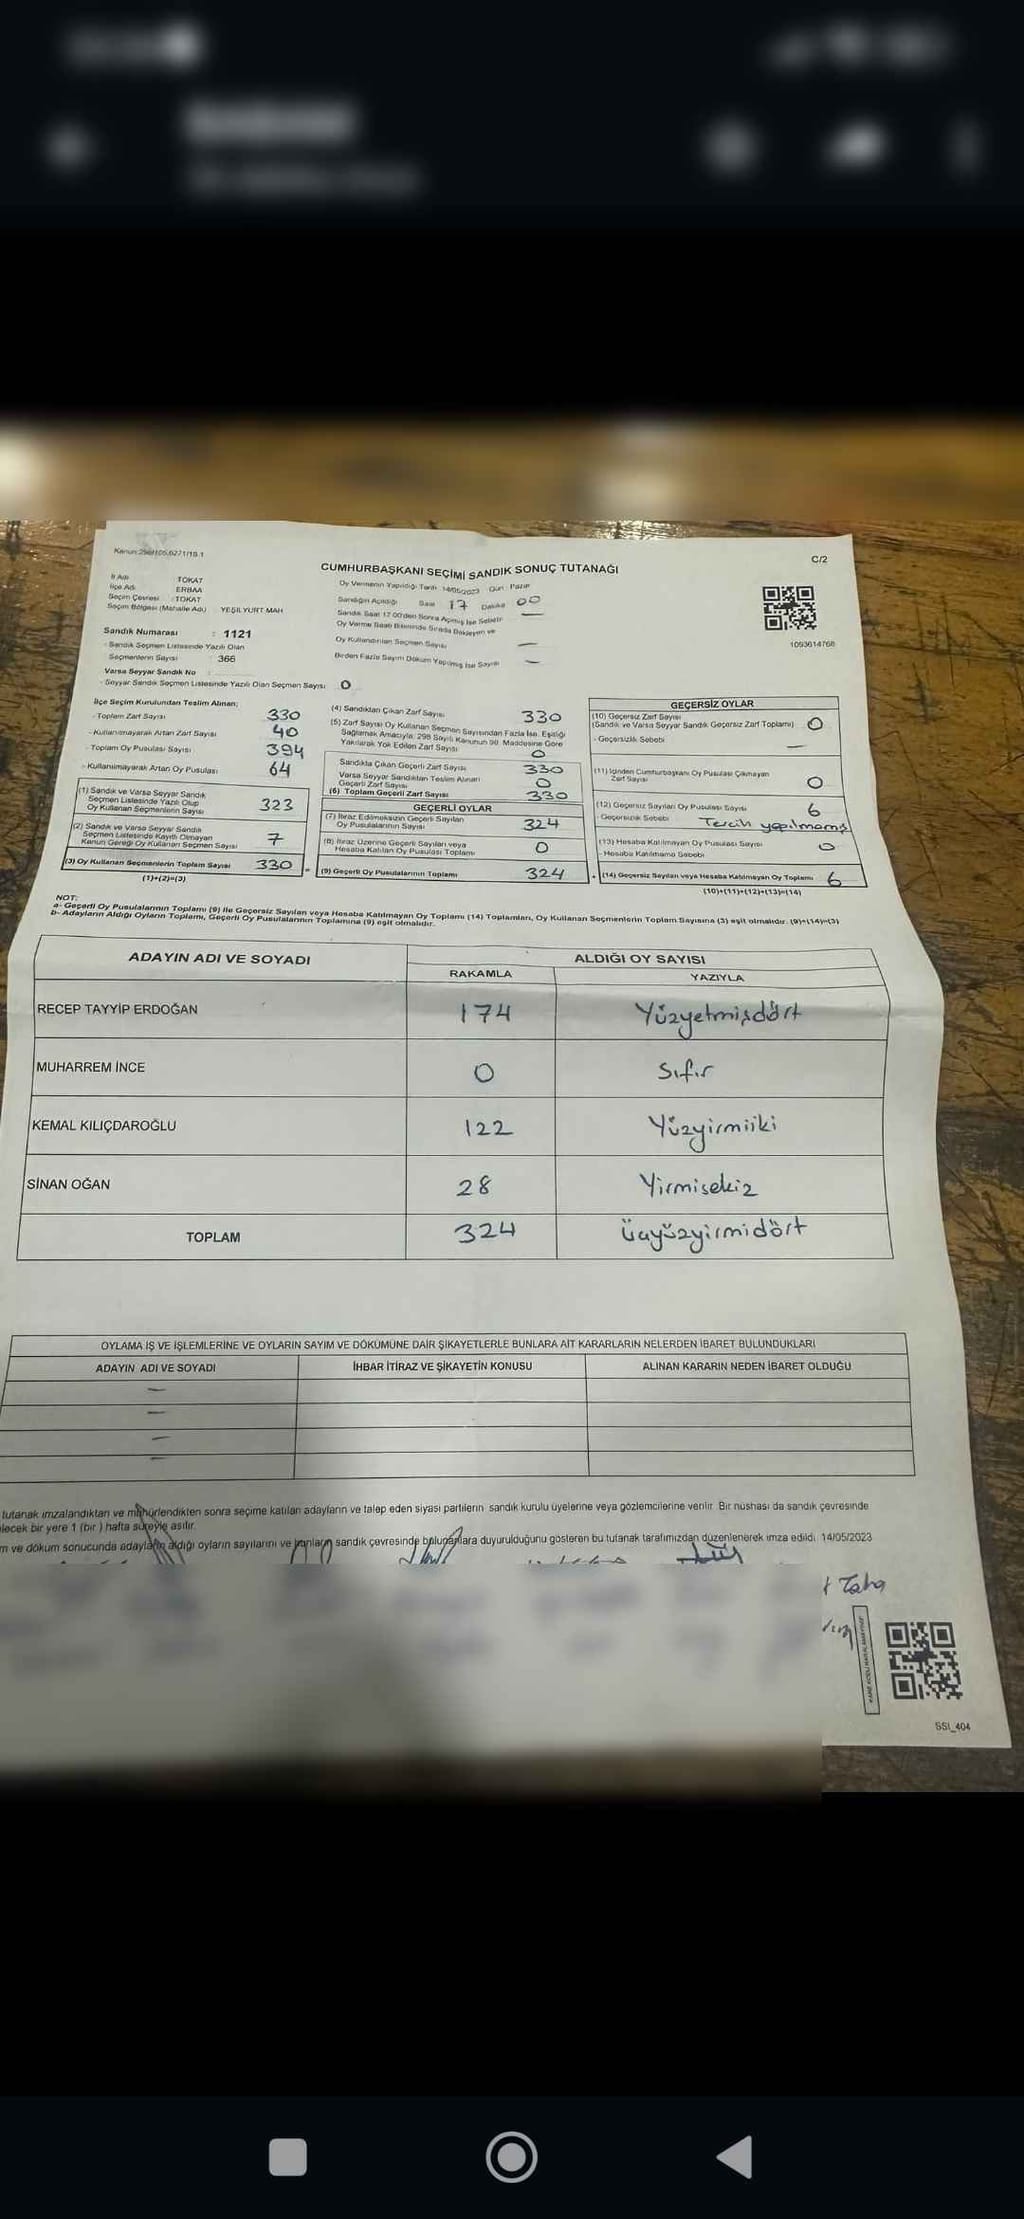 Kanun:298/105,6271/18.1
C/2
CUMHURBAŞKANI SEÇİMİ SANDIK SONUÇ TUTANAĞI
İl Adı TOKAT
İlçe Adı ERBAA
Seçim Çevresi : TOKAT
Seçim Bölgesi (Mahalle Adı) YEŞİLYURT MAH
Sandık Numarası : 1121
- Sandık Seçmen Listesinde Yazılı Olan
Seçmenlerin Sayısı : 366
Varsa Seyyar Sandık No
- Seyyar Sandık Seçmen Listesinde Yazılı Olan Seçmen Sayısı 0
Oy Vermenin Yapıldığı Tarih 14/05/2023 Gün : Pazar
Sandığın Açıldığı Saat 17 Dakika 00
Sandık Saat 17.00'den Sonra Açılmış İse Sebebi —
Oy Verme Saati Bitiminde Sırada Bekleyen ve
Oy Kullandırılan Seçmen Sayısı —
Birden Fazla Sayım Döküm Yapılmış İse Sayısı —
1093614768
İlçe Seçim Kurulundan Teslim Alınan;
- Toplam Zarf Sayısı 330
- Kullanılmayarak Artan Zarf Sayısı 40
- Toplam Oy Pusulası Sayısı 394
- Kullanılmayarak Artan Oy Pusulası 64
(1) Sandık ve Varsa Seyyar Sandık
Seçmen Listesinde Yazılı Olup
Oy Kullanan Seçmenlerin Sayısı 323
(2) Sandık ve Varsa Seyyar Sandık
Seçmen Listesinde Kayıtlı Olmayan
Kanun Gereği Oy Kullanan Seçmen Sayısı 7
(3) Oy Kullanan Seçmenlerin Toplam Sayısı 330
(1)+(2)=(3)
(4) Sandıktan Çıkan Zarf Sayısı 330
(5) Zarf Sayısı Oy Kullanan Seçmen Sayısından Fazla İse, Eşitliği
Sağlamak Amacıyla, 298 Sayılı Kanunun 98. Maddesine Göre
Yakılarak Yok Edilen Zarf Sayısı 0
Sandıkta Çıkan Geçerli Zarf Sayısı 330
Varsa Seyyar Sandıktan Teslim Alınan
Geçerli Zarf Sayısı 0
(6) Toplam Geçerli Zarf Sayısı 330
GEÇERLİ OYLAR
(7) İtiraz Edilmeksizin Geçerli Sayılan
Oy Pusulalarının Sayısı 324
(8) İtiraz Üzerine Geçerli Sayılan veya
Hesaba Katılan Oy Pusulası Toplamı 0
(9) Geçerli Oy Pusulalarının Toplamı 324
GEÇERSİZ OYLAR
(10) Geçersiz Zarf Sayısı
(Sandık ve Varsa Seyyar Sandık Geçersiz Zarf Toplamı) 0
- Geçersizlik Sebebi —
(11) İçinden Cumhurbaşkanı Oy Pusulası Çıkmayan
Zarf Sayısı 0
(12) Geçersiz Sayılan Oy Pusulası Sayısı 6
- Geçersizlik Sebebi Tercih yapılmamış
(13) Hesaba Katılmayan Oy Pusulası Sayısı 0
- Hesaba Katılmama Sebebi
(14) Geçersiz Sayılan veya Hesaba Katılmayan Oy Toplamı 6
(10)+(11)+(12)+(13)=(14)
NOT:
a- Geçerli Oy Pusulalarının Toplamı (9) ile Geçersiz Sayılan veya Hesaba Katılmayan Oy Toplamı (14) Toplamları, Oy Kullanan Seçmenlerin Toplam Sayısına (3) eşit olmalıdır. (9)+(14)=(3)
b- Adayların Aldığı Oyların Toplamı, Geçerli Oy Pusulalarının Toplamına (9) eşit olmalıdır.
ADAYIN ADI VE SOYADI
ALDIĞI OY SAYISI
RAKAMLA YAZIYLA
RECEP TAYYİP ERDOĞAN 174 Yüzyetmişdört
MUHARREM İNCE 0 Sıfır
KEMAL KILIÇDAROĞLU 122 Yüzyirmiiki
SİNAN OĞAN 28 Yirmisekiz
TOPLAM 324 Üçyüzyirmidört
OYLAMA İŞ VE İŞLEMLERİNE VE OYLARIN SAYIM VE DÖKÜMÜNE DAİR ŞİKAYETLERLE BUNLARA AİT KARARLARIN NELERDEN İBARET BULUNDUKLARI
ADAYIN ADI VE SOYADI İHBAR İTİRAZ VE ŞİKAYETİN KONUSU ALINAN KARARIN NEDEN İBARET OLDUĞU
—
—
—
—
tutanak imzalandıktan ve mühürlendikten sonra seçime katılan adayların ve talep eden siyasi partilerin sandık kurulu üyelerine veya gözlemcilerine verilir. Bir nüshası da sandık çevresinde
lecek bir yere 1 (bir) hafta süreyle asılır.
m ve döküm sonucunda adayların aldığı oyların sayılarını ve bunların sandık çevresinde bulunanlara duyurulduğunu gösteren bu tutanak tarafımızdan düzenlenerek imza edildi. 14/05/2023
Taha
SSI_404